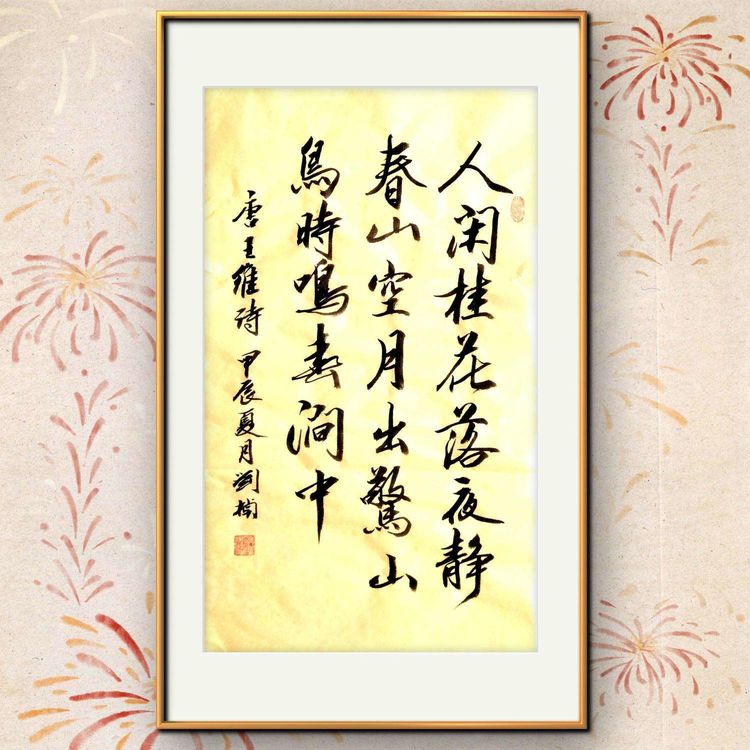 人闲桂花落夜静
春山空月出驚山
鳥時鳴春澗中
唐王維詩 甲辰夏月劉楠